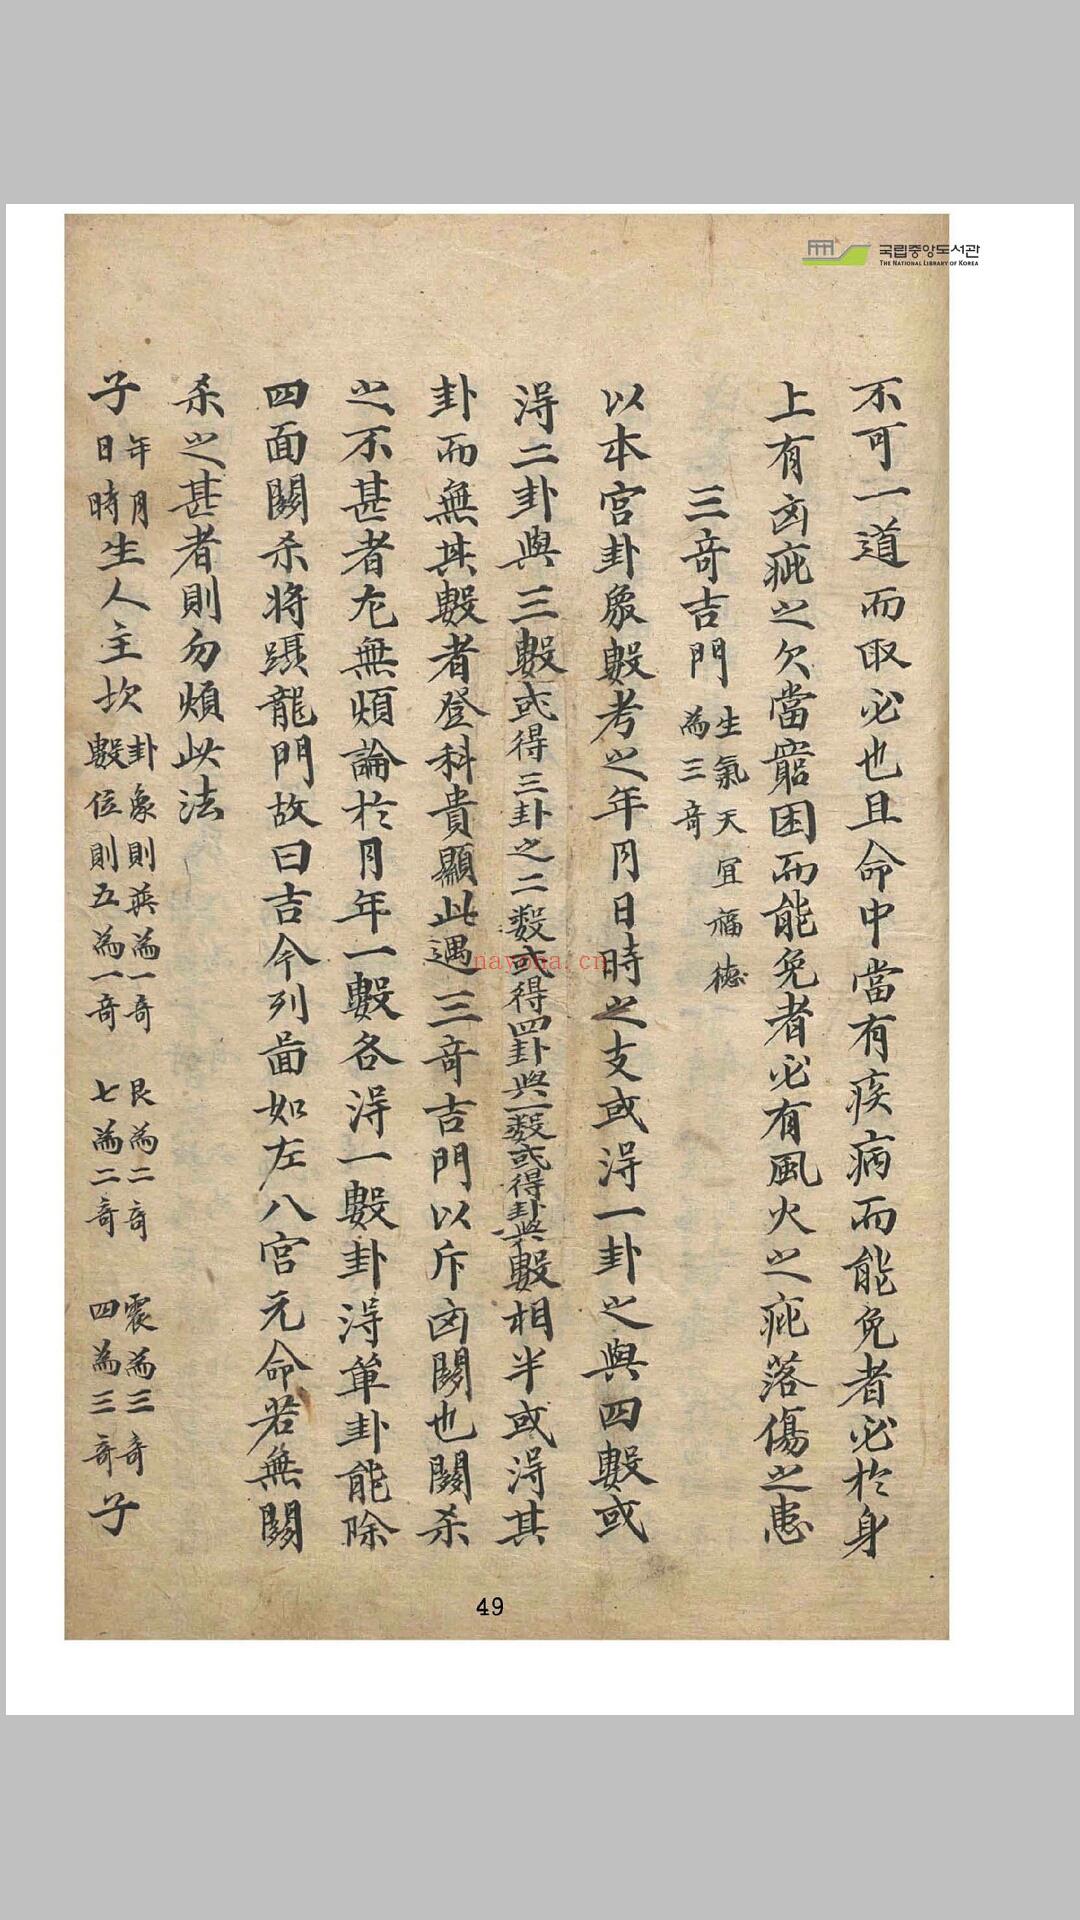 국립중앙도서관
THE NATIONAL LIBRARY OF KOREA
不可一道而取必也且命中當有疾病而能免者必於身
上有凶疵之欠當窮困而能免者必有風火之疵落傷之患
三奇吉門 生氣天宜福德
為三奇
以本宮卦象數考之年月日時之支或得一卦之與四數或
得二卦與三數或得三卦之二数或得四卦與一数或得卦與數相半或得其
卦而無其數者登科貴顯此遇三奇吉門以斥凶關也關杀
之不甚者尤無煩論於月年一數各得一數卦得單卦能除
四面關杀将躡龍門故曰吉今列啚如左八宮元命若無關
杀之甚者則勿煩此法
子 年月
日時 生人主坎 卦象則巽為一奇 艮為二奇 震為三奇
數位則五為一奇 七為二奇 四為三奇 子
nayona.cn
49